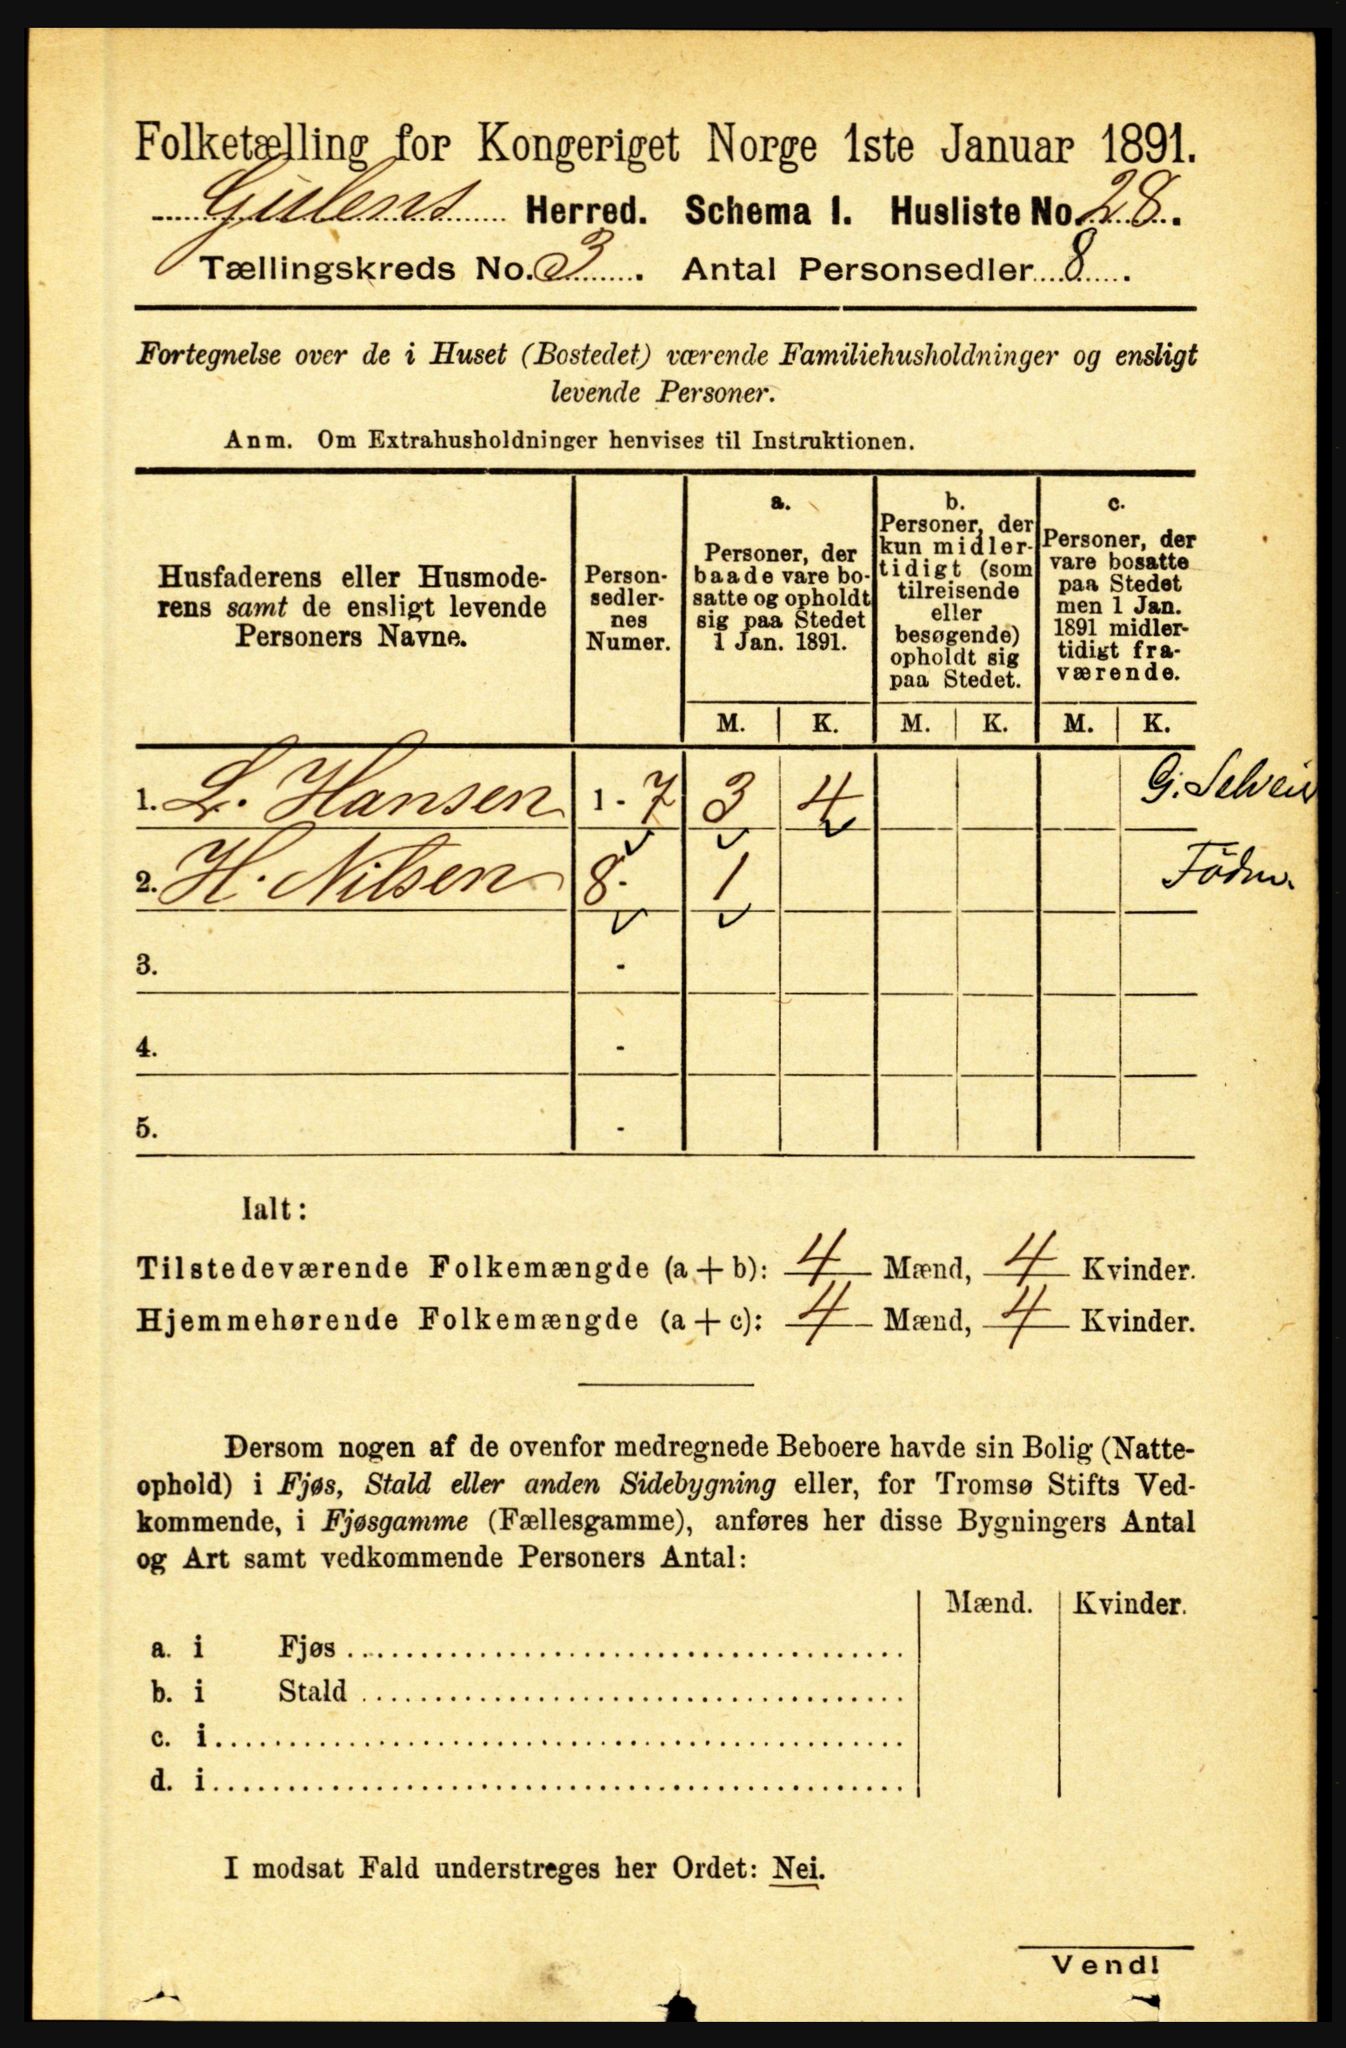 Folketælling for Kongeriget Norge 1ste Januar 1891.
Gulens Herred. Schema I. Husliste No. 28.
Tællingskreds No. 3. Antal Personsedler 8.
Fortegnelse over de i Huset (Bostedet) værende Familiehusholdninger og ensligt
levende Personer.
Anm. Om Extrahusholdninger henvises til Instruktionen.
Husfaderens eller Husmode-
rens samt de ensligt levende
Personers Navne.
Person-
sedler-
nes
Numer.
a.
Personer, der
baade vare bo-
satte og opholdt
sig paa Stedet
1 Jan. 1891.
b.
Personer, der
kun midler-
tidigt (som
tilreisende
eller
besøgende)
opholdt sig
paa Stedet.
c.
Personer, der
vare bosatte
paa Stedet
men 1 Jan.
1891 midler-
tidigt fra-
værende.
M. K. M. K. M. K.
1. L. Hansen 1 - 7 3 4 G.
2. H. Nilsen 8 - 1
3. -
4. -
5. -
Ialt:
Tilstedeværende Folkemængde (a + b): 4 Mænd, 4 Kvinder.
Hjemmehørende Folkemængde (a + c): 4 Mænd, 4 Kvinder.
Dersom nogen af de ovenfor medregnede Beboere havde sin Bolig (Natte-
ophold) i Fjøs, Stald eller anden Sidebygning eller, for Tromsø Stifts Ved-
kommende, i Fjøsgamme (Fællesgamme), anføres her disse Bygningers Antal
og Art samt vedkommende Personers Antal:
Mænd. Kvinder.
a. i Fjøs
b. i Stald
c. i
d. i
I modsat Fald understreges her Ordet: Nei.
Vend!